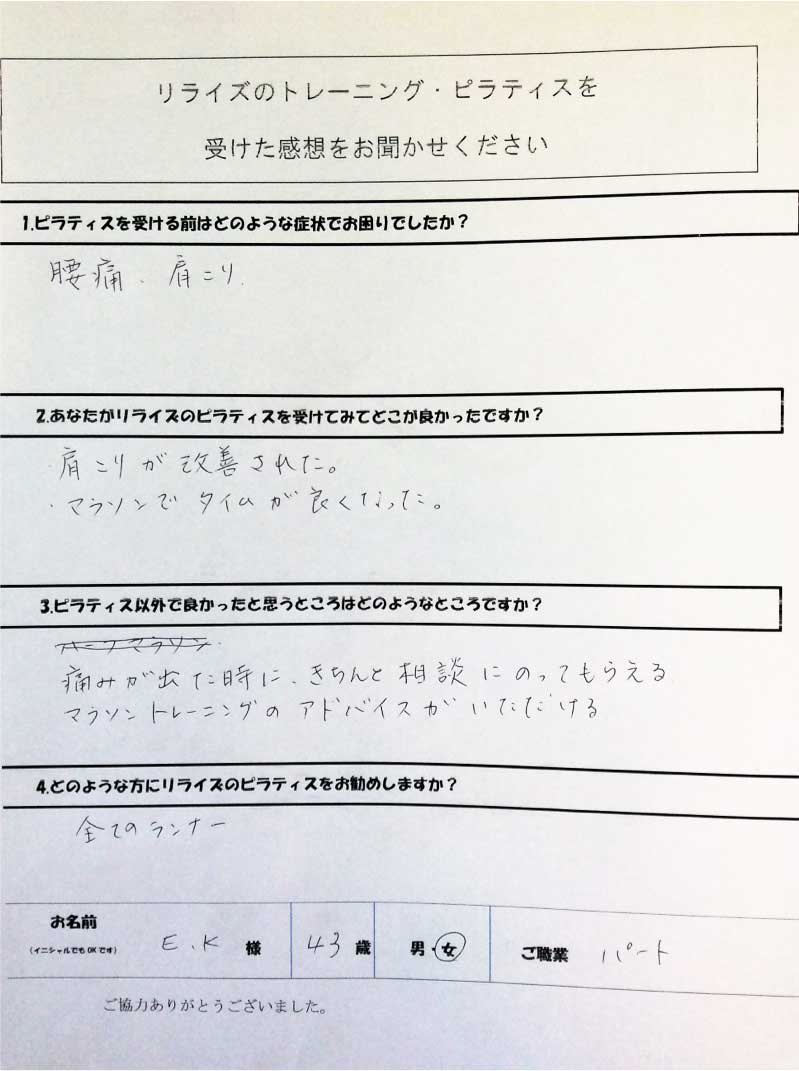 リライズのトレーニング・ピラティスを
受けた感想をお聞かせください
1.ピラティスを受ける前はどのような症状でお困りでしたか？
腰痛、肩こり.
2.あなたがリライズのピラティスを受けてみてどこが良かったですか？
・肩こりが改善された。
・マラソンでタイムが良くなった。
3.ピラティス以外で良かったと思うところはどのようなところですか？
痛みが出た時に、きちんと相談にのってもらえる
マラソントレーニングのアドバイスがいただける
4.どのような方にリライズのピラティスをお勧めしますか？
全てのランナー
お名前
(イニシャルでもOKです)
E.K 様 43歳 男・女 ご職業 パート
ご協力ありがとうございました。